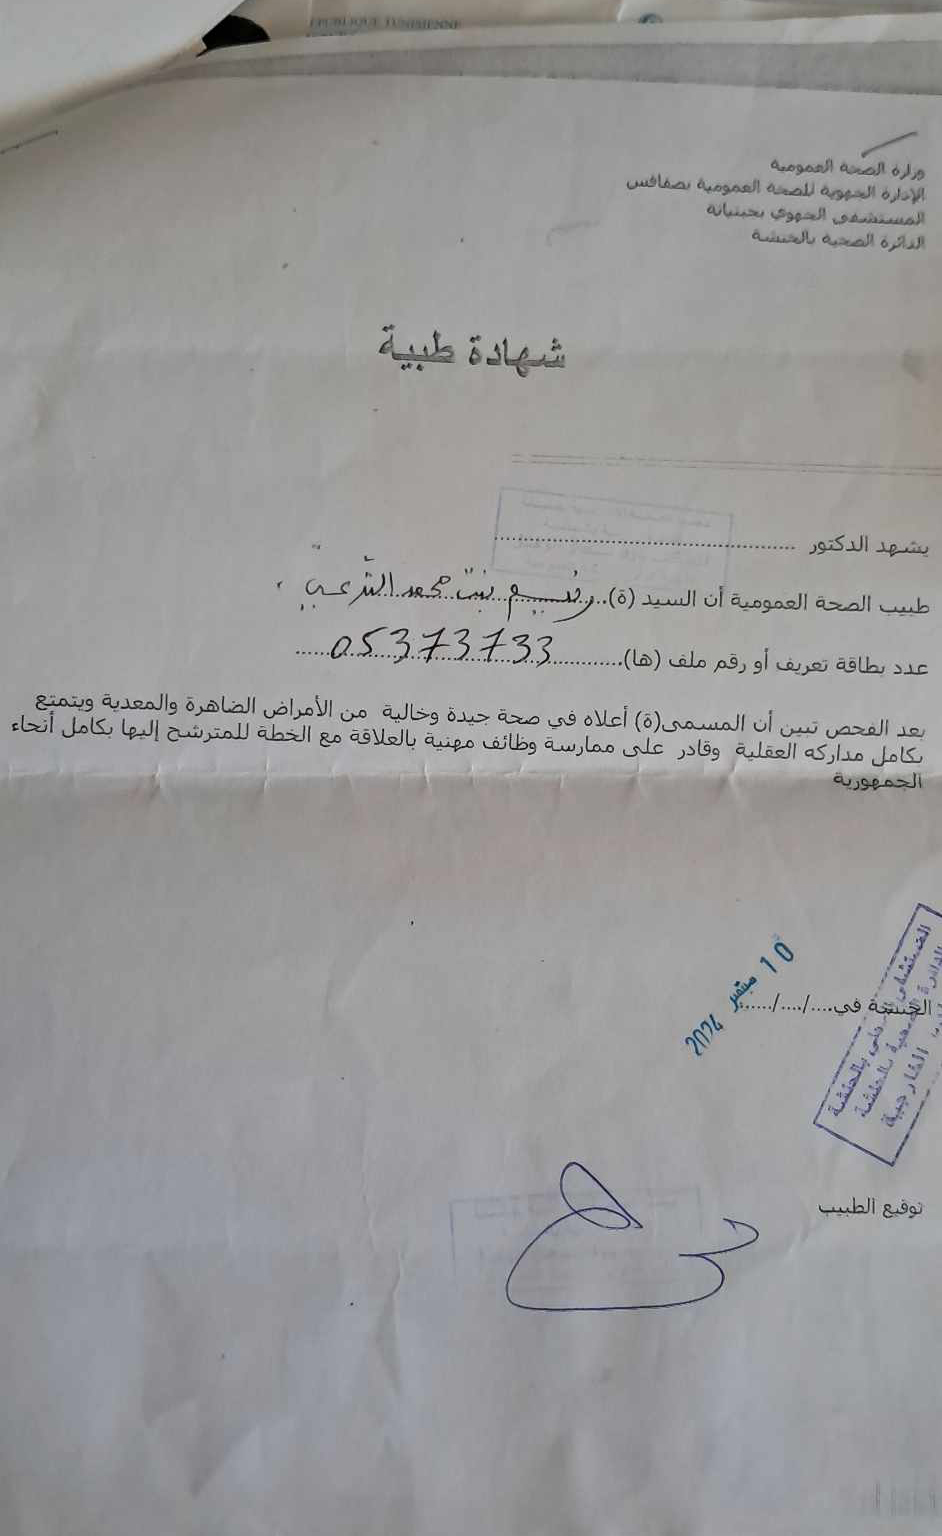 REPUBLIQUE TUNISIENNE
وزارة الصحة العمومية
الإدارة الجهوية للصحة العمومية بصفاقس
المستشفى الجهوي بجبنيانة
الدائرة الصحية بالحنشة
شهادة طبية
يشهد الدكتور ..........................................
طبيب الصحة العمومية أن السيد (ة)... بنت محمد الترعي
عدد بطاقة تعريف أو رقم ملف (ها)............05373733.....
بعد الفحص تبين أن المسمى(ة) أعلاه في صحة جيدة وخالية من الأمراض الضاهرة والمعدية ويتمتع
بكامل مداركه العقلية وقادر على ممارسة وظائف مهنية بالعلاقة مع الخطة للمترشح إليها بكامل أنحاء
الجمهورية
الحنشة في..../..../......
10 سبتمبر 2024
المستشفى المحلي بالحنشة
الدائرة الصحية بالحنشة
الخارجية
توقيع الطبيب